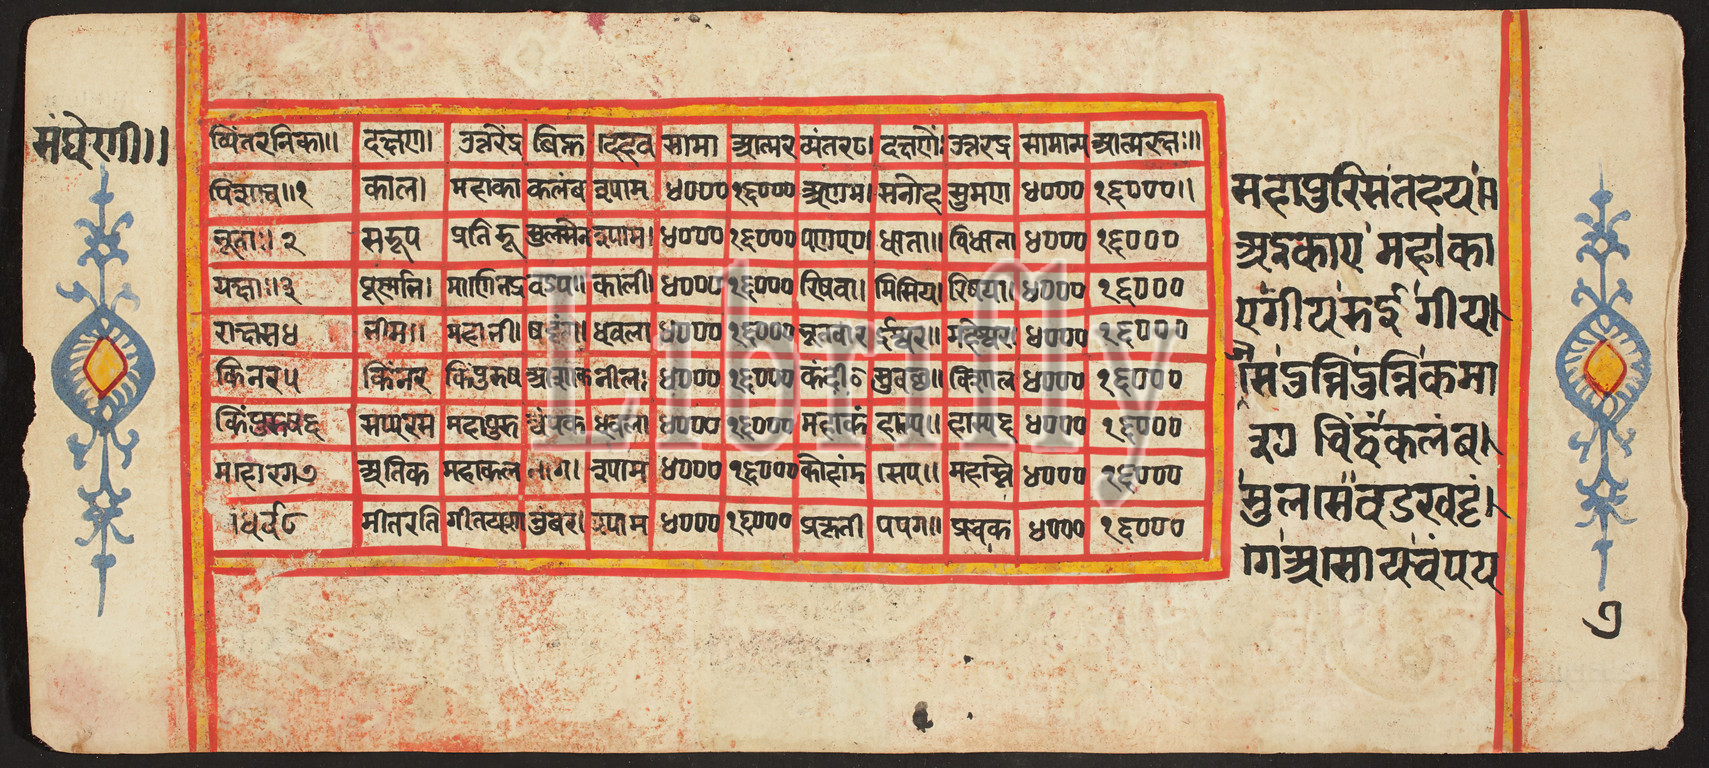 मंघेरणी॥
व्यिंतरनिका॥ दक्षण। उत्तरेंद्र चिह्न देहव सामा आत्मर व्यंतर८। दक्षणें। उत्तरेंद्र सामान्य आत्मरक्षः॥
पिशाच॥१ काल। महाका कलंब श्याम ४००० १६००० अणप। सनीह सुमाण ४००० १६०००॥
भूताः। २ सरूप प्रतिरू सुलसेन श्याम। ४००० १६००० पणप०। धाता॥ विधाता ४००० १६०००
यक्षाः।३ पूरणनि। माणिनद्र वडप॥ काली। ४००० १६००० रिषवा। सिसिय। रिषया। ४००० १६०००
राक्षस४ नीम॥ महानी। षटंग॥ धवला ४००० १६००० भूतवार ईश्वर॥ महेश्वर। ४००० १६०००
किंनर५ किंनर किंपुरुष अशोक नील। ४००० १६००० कंदी६ सुवछ॥ विशाल ४००० १६०००
किंपुरुष६ सप्पुरस महापुरु चंपक धवला ४००० १६००० महाकं हास्य॥ हास्यइ ४००० १६०००
माहारग७ अतिक महाकल नाग। श्याम ४००० १६००० कोहांम सेप॥ महास्वि ४००० १६०००
गंधर्व८ गीतरति गीतयश तुंबर। श्याम ४००० १६००० प्रहनी पपग॥ प्रवक ४००० १६०००
महापुरिसंतहयं॥
अइकायं महाका
यंगीयरुईंगीय।
सिं दुन्निदुन्निकमा
२७ चिंहंकलंब।
सुलसेवडखट्टं।
गेअसोयचंपय
७
Librfly